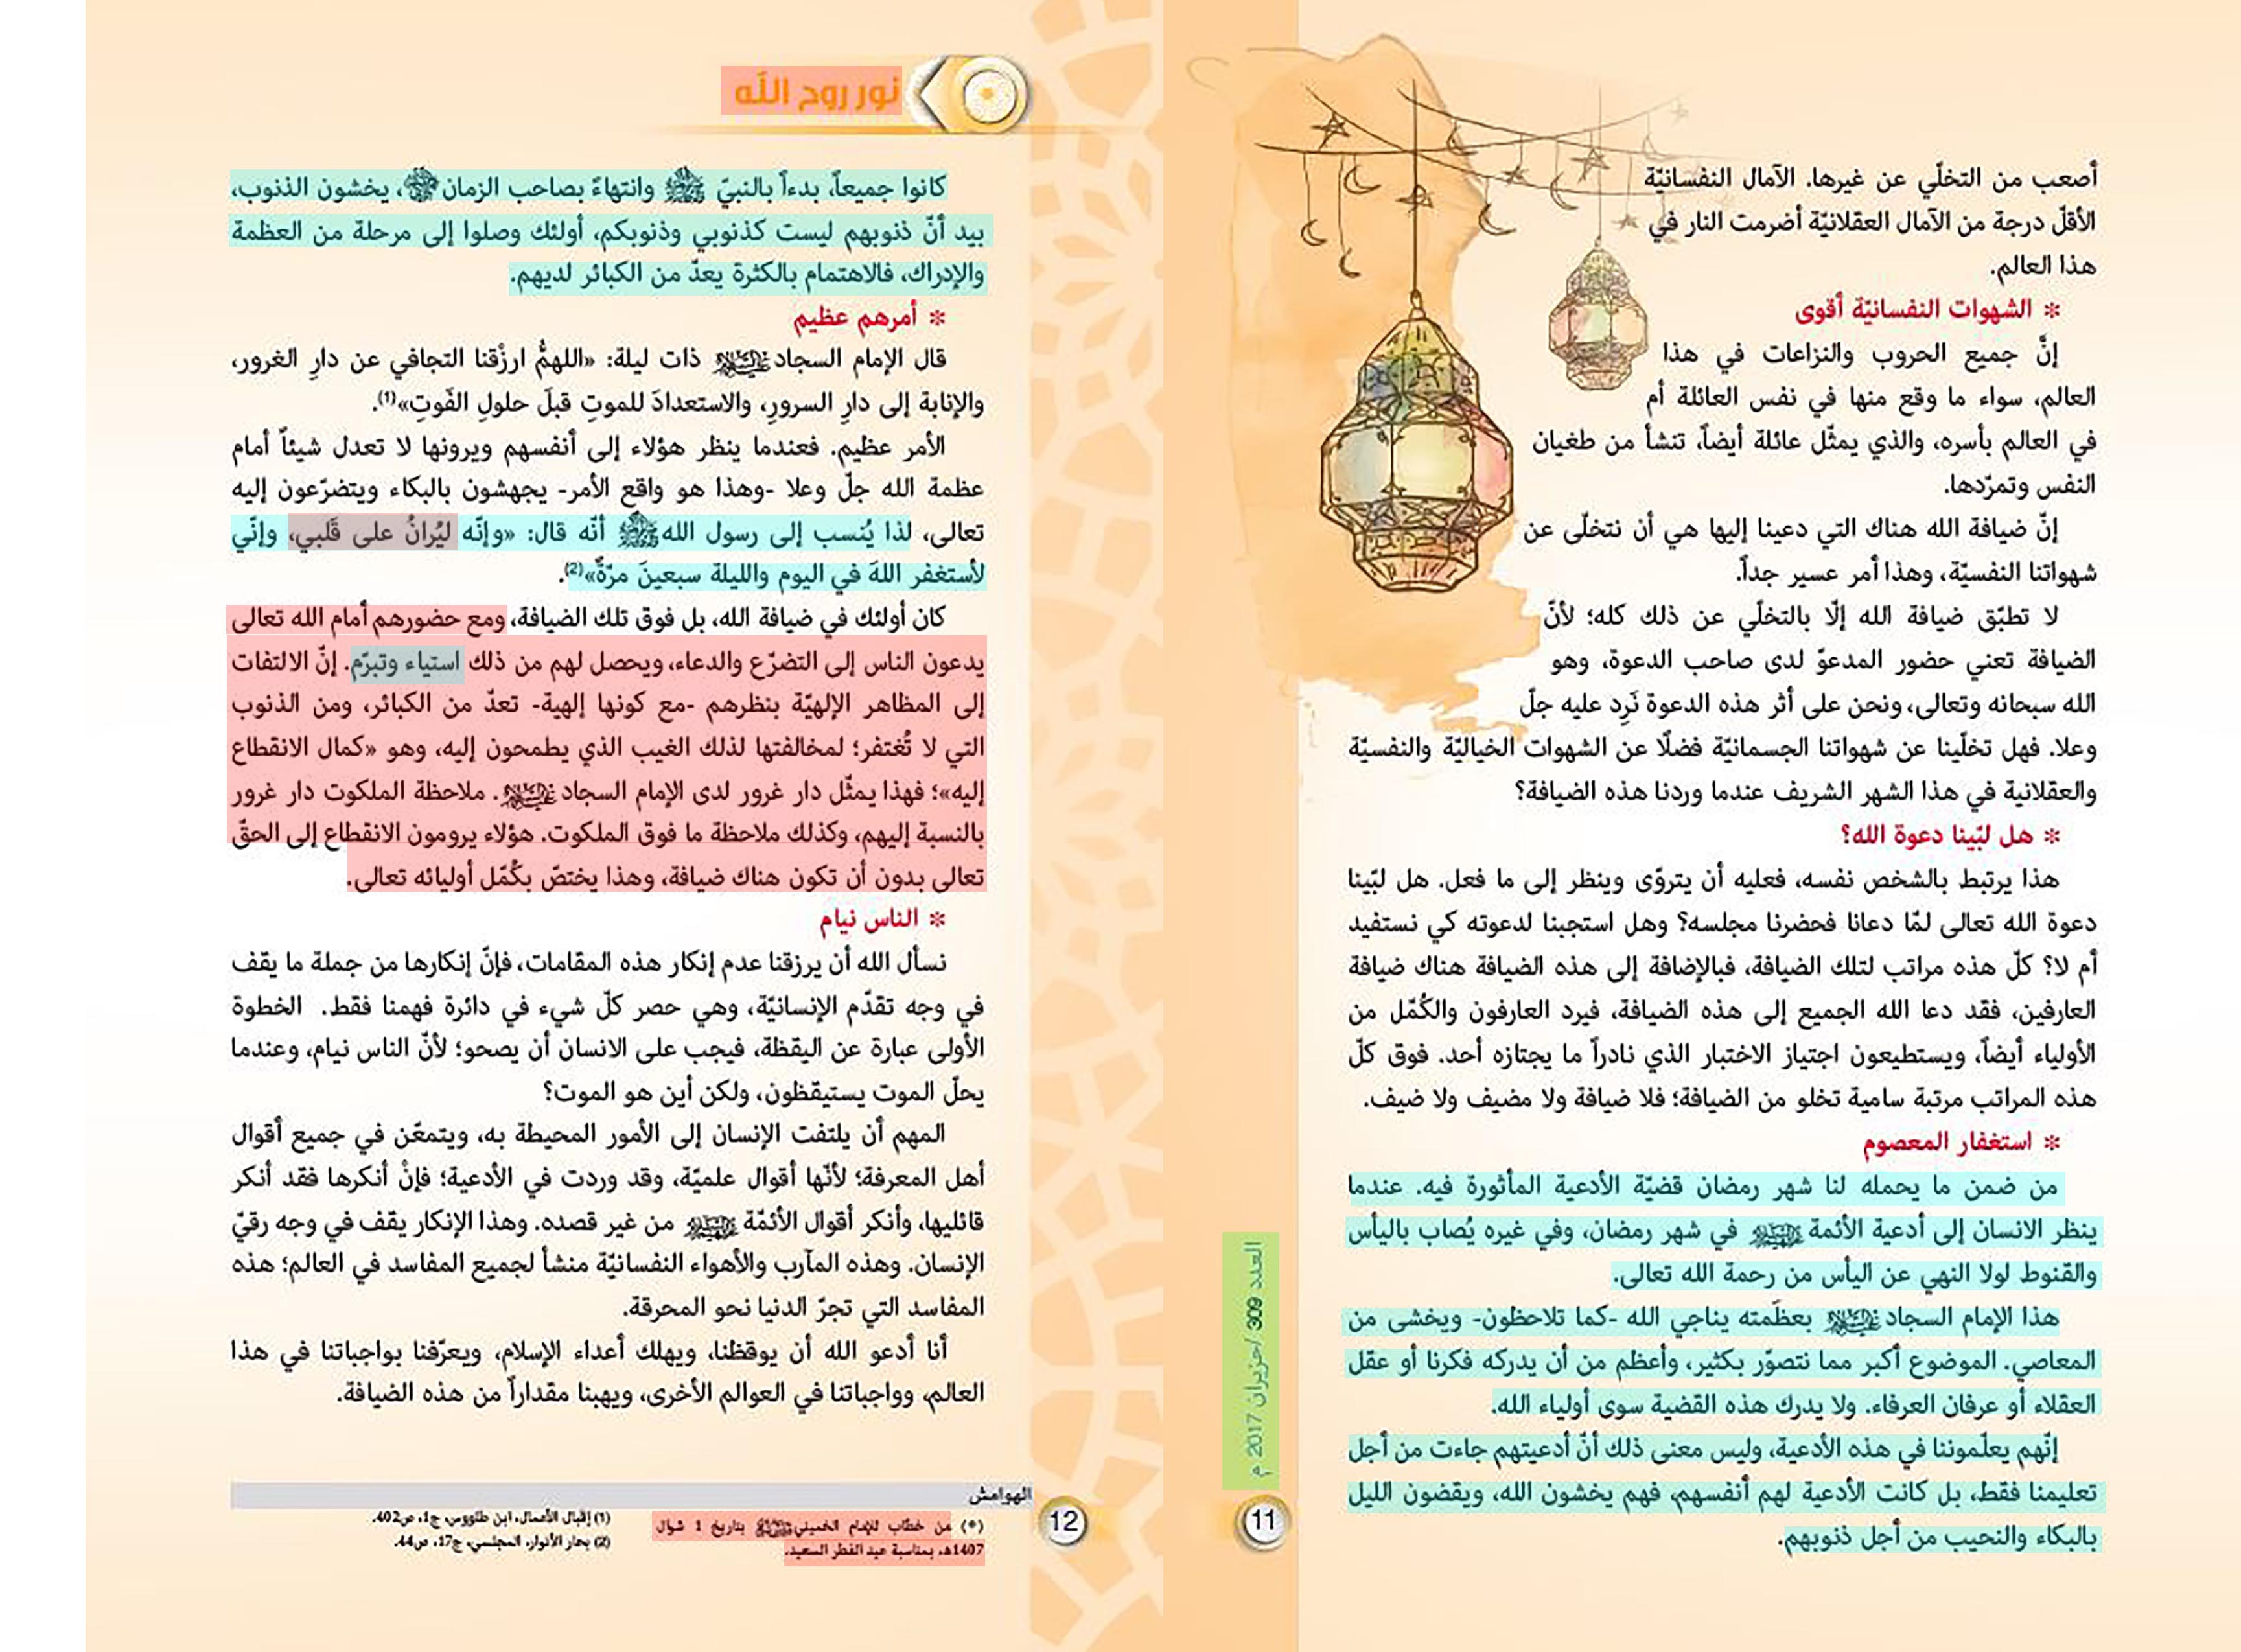 أصعب من التخلّي عن غيرها. الآمال النفسانيّة
الأقلّ درجة من الآمال العقلانيّة أضرمت النار في
هذا العالم.
* الشهوات النفسانيّة أقوى
إنَّ جميع الحروب والنزاعات في هذا
العالم، سواء ما وقع منها في نفس العائلة أم
في العالم بأسره، والذي يمثّل عائلة أيضاً، تنشأ من طغيان
النفس وتمرّدها.
إنّ ضيافة الله هناك التي دعينا إليها هي أن نتخلّى عن
شهواتنا النفسيّة، وهذا أمر عسير جداً.
لا تطبّق ضيافة الله إلّا بالتخلّي عن ذلك كله؛ لأنّ
الضيافة تعني حضور المدعوّ لدى صاحب الدعوة، وهو
الله سبحانه وتعالى، ونحن على أثر هذه الدعوة نَرِد عليه جلّ
وعلا. فهل تخلّينا عن شهواتنا الجسمانيّة فضلًا عن الشهوات الخياليّة والنفسيّة
والعقلانية في هذا الشهر الشريف عندما وردنا هذه الضيافة؟
* هل لبّينا دعوة الله؟
هذا يرتبط بالشخص نفسه، فعليه أن يتروّى وينظر إلى ما فعل. هل لبّينا
دعوة الله تعالى لمّا دعانا فحضرنا مجلسه؟ وهل استجبنا لدعوته كي نستفيد
أم لا؟ كلّ هذه مراتب لتلك الضيافة، فبالإضافة إلى هذه الضيافة هناك ضيافة
العارفين، فقد دعا الله الجميع إلى هذه الضيافة، فيرد العارفون والكُمّل من
الأولياء أيضاً، ويستطيعون اجتياز الاختبار الذي نادراً ما يجتازه أحد. فوق كلّ
هذه المراتب مرتبة سامية تخلو من الضيافة؛ فلا ضيافة ولا مضيف ولا ضيف.
* استغفار المعصوم
من ضمن ما يحمله لنا شهر رمضان قضيّة الأدعية المأثورة فيه. عندما
ينظر الانسان إلى أدعية الأئمة عليهم السلام في شهر رمضان، وفي غيره يُصاب باليأس
والقنوط لولا النهي عن اليأس من رحمة الله تعالى.
هذا الإمام السجاد عليه السلام بعظَمته يناجي الله -كما تلاحظون- ويخشى من
المعاصي. الموضوع أكبر مما نتصوّر بكثير، وأعظم من أن يدركه فكرنا أو عقل
العقلاء أو عرفان العرفاء. ولا يدرك هذه القضية سوى أولياء الله.
إنّهم يعلّموننا في هذه الأدعية، وليس معنى ذلك أنّ أدعيتهم جاءت من أجل
تعليمنا فقط، بل كانت الأدعية لهم أنفسهم، فهم يخشون الله، ويقضون الليل
بالبكاء والنحيب من أجل ذنوبهم.
العدد 309 /حزيران 2017 م
11
نور روح الله
كانوا جميعاً، بدءاً بالنبيّ ﷺ وانتهاءً بصاحب الزمان، يخشون الذنوب،
بيد أنّ ذنوبهم ليست كذنوبي وذنوبكم، أولئك وصلوا إلى مرحلة من العظمة
والإدراك، فالاهتمام بالكثرة يعدّ من الكبائر لديهم.
* أمرهم عظيم
قال الإمام السجاد عليه السلام ذات ليلة: «اللهمُّ ارزُقنا التجافي عن دارِ الغرور،
والإنابة إلى دارِ السرورِ، والاستعدادَ للموتِ قبلَ حلولِ الفَوتِ»(1).
الأمر عظيم. فعندما ينظر هؤلاء إلى أنفسهم ويرونها لا تعدل شيئاً أمام
عظمة الله جلّ وعلا -وهذا هو واقع الأمر- يجهشون بالبكاء ويتضرّعون إليه
تعالى، لذا يُنسب إلى رسول الله ﷺ أنّه قال: «وإنّه ليُرانُ على قَلبي، وإنّي
لأستغفر اللهَ في اليوم والليلة سبعينَ مرّةً»(2).
كان أولئك في ضيافة الله، بل فوق تلك الضيافة، ومع حضورهم أمام الله تعالى
يدعون الناس إلى التضرّع والدعاء، ويحصل لهم من ذلك استياء وتبرّم. إنّ الالتفات
إلى المظاهر الإلهيّة بنظرهم -مع كونها إلهية- تعدّ من الكبائر، ومن الذنوب
التي لا تُغتفر؛ لمخالفتها لذلك الغيب الذي يطمحون إليه، وهو «كمال الانقطاع
إليه»؛ فهذا يمثّل دار غرور لدى الإمام السجاد عليه السلام. ملاحظة الملكوت دار غرور
بالنسبة إليهم، وكذلك ملاحظة ما فوق الملكوت. هؤلاء يرومون الانقطاع إلى الحقّ
تعالى بدون أن تكون هناك ضيافة، وهذا يختصّ بكُمّل أوليائه تعالى.
* الناس نيام
نسأل الله أن يرزقنا عدم إنكار هذه المقامات، فإنّ إنكارها من جملة ما يقف
في وجه تقدّم الإنسانيّة، وهي حصر كلّ شيء في دائرة فهمنا فقط. الخطوة
الأولى عبارة عن اليقظة، فيجب على الانسان أن يصحو؛ لأنّ الناس نيام، وعندما
يحلّ الموت يستيقظون، ولكن أين هو الموت؟
المهم أن يلتفت الإنسان إلى الأمور المحيطة به، ويتمعّن في جميع أقوال
أهل المعرفة؛ لأنّها أقوال علميّة، وقد وردت في الأدعية؛ فإنْ أنكرها فقد أنكر
قائليها، وأنكر أقوال الأئمّة عليهم السلام من غير قصده. وهذا الإنكار يقف في وجه رقيّ
الإنسان. وهذه المآرب والأهواء النفسانيّة منشأ لجميع المفاسد في العالم؛ هذه
المفاسد التي تجرّ الدنيا نحو المحرقة.
أنا أدعو الله أن يوقظنا، ويهلك أعداء الإسلام، ويعرّفنا بواجباتنا في هذا
العالم، وواجباتنا في العوالم الأخرى، ويهبنا مقداراً من هذه الضيافة.
الهوامش
(*) من خطاب للإمام الخميني بتاريخ 1 شوال
1407هـ، بمناسبة عيد الفطر السعيد.
(1) إقبال الأعمال، ابن طاووس، ج1، ص402.
(2) بحار الأنوار، المجلسي، ج17، ص44.
12